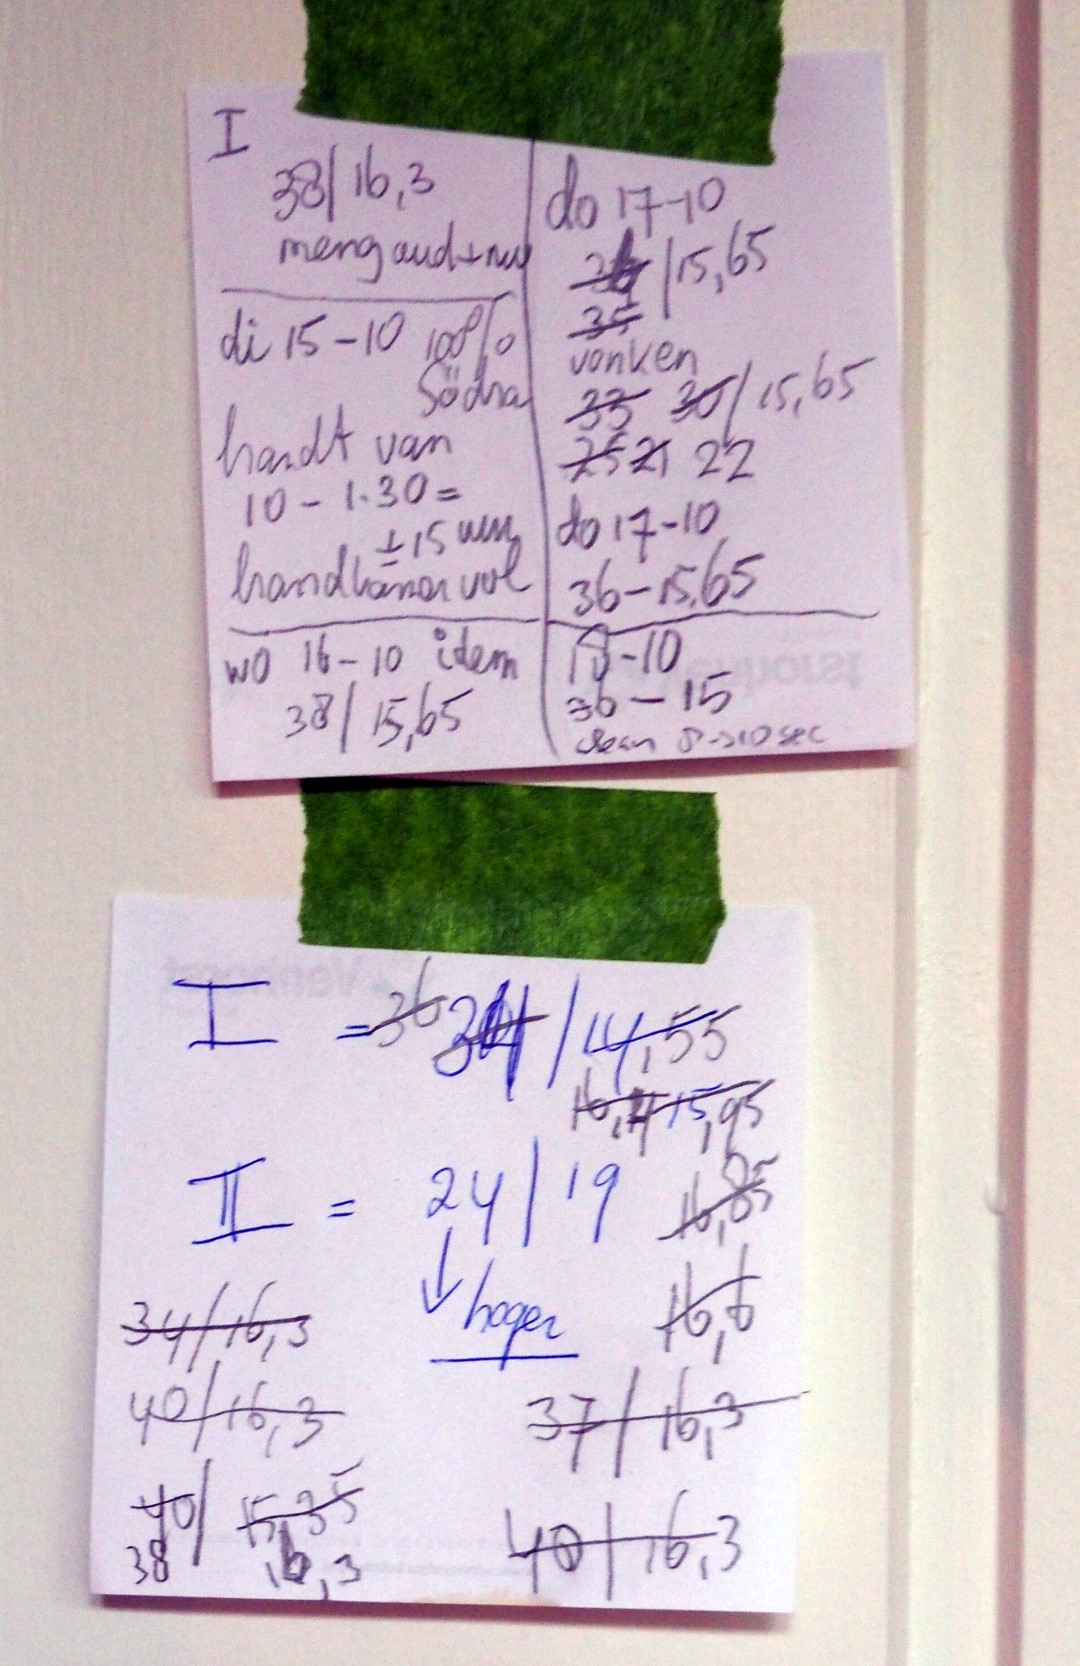 I
38/16,3
meng oud+nw
di 15-10 100%
Södra
hardt van
10-1.30=
±15 um
wo 16-10 idem
38/15,65
do 17-10
/15,65
35
vonken
33 30/15,65
25 21 22
do 17-10
36-15,65
18-10
36-15
clean 8->10 sec
I = 36 34/14,55
16,4 15,95
II = 24/19
16,85
↓ hoger
16,6
34/16,3
40/16,3
37/16,3
40/15,35
38 16,3
40/16,3